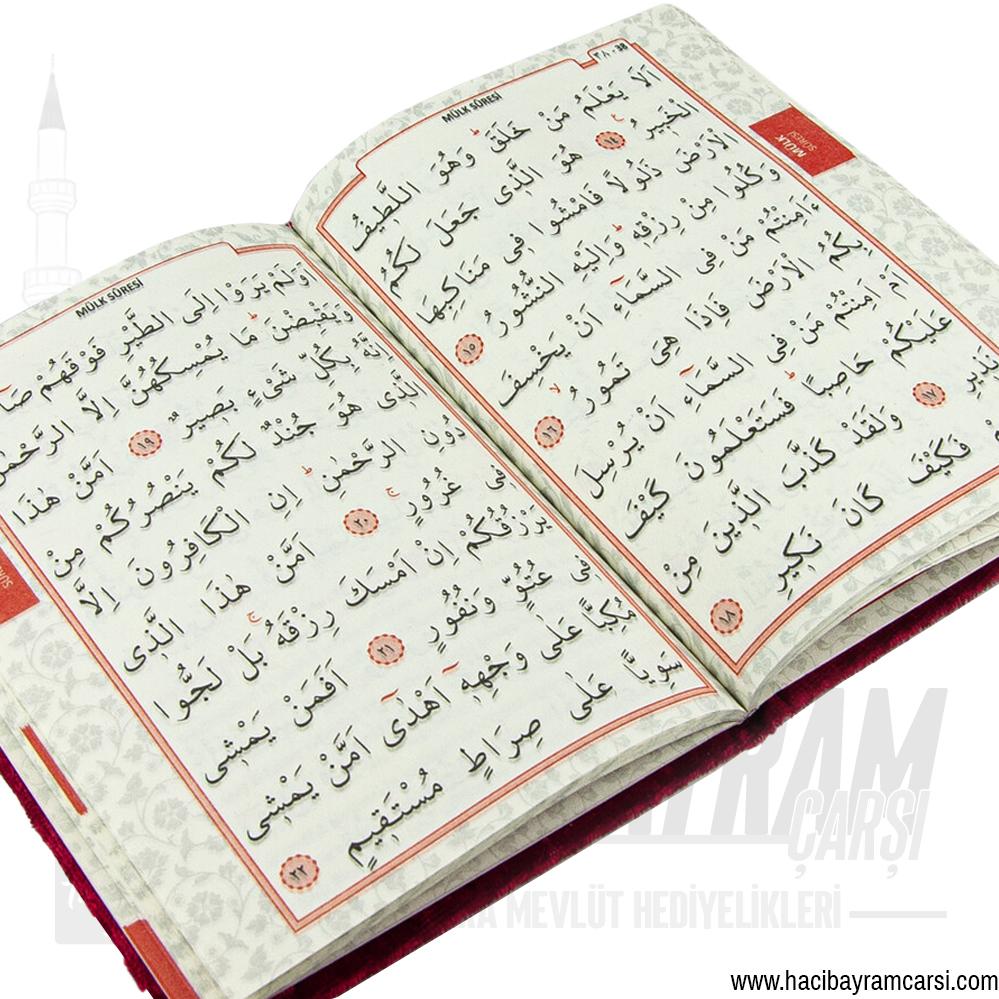 ٣٨ - 38
MÜLK SÛRESİ
MÜLK
SÛRESİ
اَلَا يَعْلَمُ مَنْ خَلَقَۜ وَهُوَ اللَّط۪يفُ
الْخَب۪يرُ۟ ﴿١٤﴾ هُوَ الَّذ۪ي جَعَلَ لَكُمُ
الْاَرْضَ ذَلُولًا فَامْشُوا ف۪ي مَنَاكِبِهَا
وَكُلُوا مِنْ رِزْقِه۪ۜ وَاِلَيْهِ النُّشُورُ ﴿١٥﴾
ءَاَمِنْتُمْ مَنْ فِي السَّمَٓاءِ اَنْ يَخْسِفَ
بِكُمُ الْاَرْضَ فَاِذَا هِيَ تَمُورُۙ ﴿١٦﴾
اَمْ اَمِنْتُمْ مَنْ فِي السَّمَٓاءِ اَنْ يُرْسِلَ
عَلَيْكُمْ حَاصِبًاۜ فَسَتَعْلَمُونَ كَيْفَ
نَذ۪يرِ ﴿١٧﴾ وَلَقَدْ كَذَّبَ الَّذ۪ينَ مِنْ
فَكَيْفَ كَانَ نَك۪يرِ ﴿١٨﴾
MÜLK SÛRESİ
اَوَلَمْ يَرَوْا اِلَى الطَّيْرِ فَوْقَهُمْ
وَيَقْبِضْنَۜ مَا يُمْسِكُهُنَّ اِلَّا الرَّحْمٰنُ
اِنَّهُ بِكُلِّ شَيْءٍ بَص۪يرٌ ﴿١٩﴾ اَمَّنْ هٰذَا
الَّذ۪ي هُوَ جُنْدٌ لَكُمْ يَنْصُرُكُمْ مِنْ
دُونِ الرَّحْمٰنِۜ اِنِ الْكَافِرُونَ اِلَّا
ف۪ي غُرُورٍۚ ﴿٢٠﴾ اَمَّنْ هٰذَا الَّذ۪ي
يَرْزُقُكُمْ اِنْ اَمْسَكَ رِزْقَهُۚ بَلْ لَجُّوا
ف۪ي عُتُوٍّ وَنُفُورٍ ﴿٢١﴾ اَفَمَنْ يَمْش۪ي
مُكِبًّا عَلٰى وَجْهِه۪ٓ اَهْدٰٓى اَمَّنْ يَمْش۪ي
سَوِيًّا عَلٰى صِرَاطٍ مُسْتَق۪يمٍ ﴿٢٢﴾
ÇARŞI
MEVLÜT HEDİYELİKLERİ
www.hacibayramcarsi.com